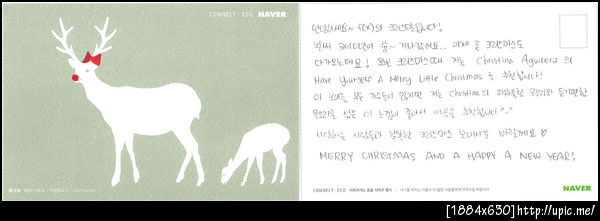 CONNECT · ECO NAVER
안녕하세요~ f(x)의 크리스탈입니다!
벌써 2010년이 다 지나갔어요... 이제 곧 크리스마스도
다가오는데요! 이번 크리스마스때 저는 Christina Aguilera의
Have Yourself A Merry Little Christmas를 추천합니다!
이 노래를 부른 가수들이 많지만 저는 Christina의 파워풀한 목소리와
목소리를 이 느낌이 좋아서 이곡을 추천합니다 ^-^
사랑하는 사람들과 행복한 크리스마스 보내시길 바랄께요 ♡
MERRY CHRISTMAS AND A HAPPY A NEW YEAR!
CONNECT · ECO 사라져가는 동물 시리즈 엽서
NAVER
[1884x630] http://upic.me/